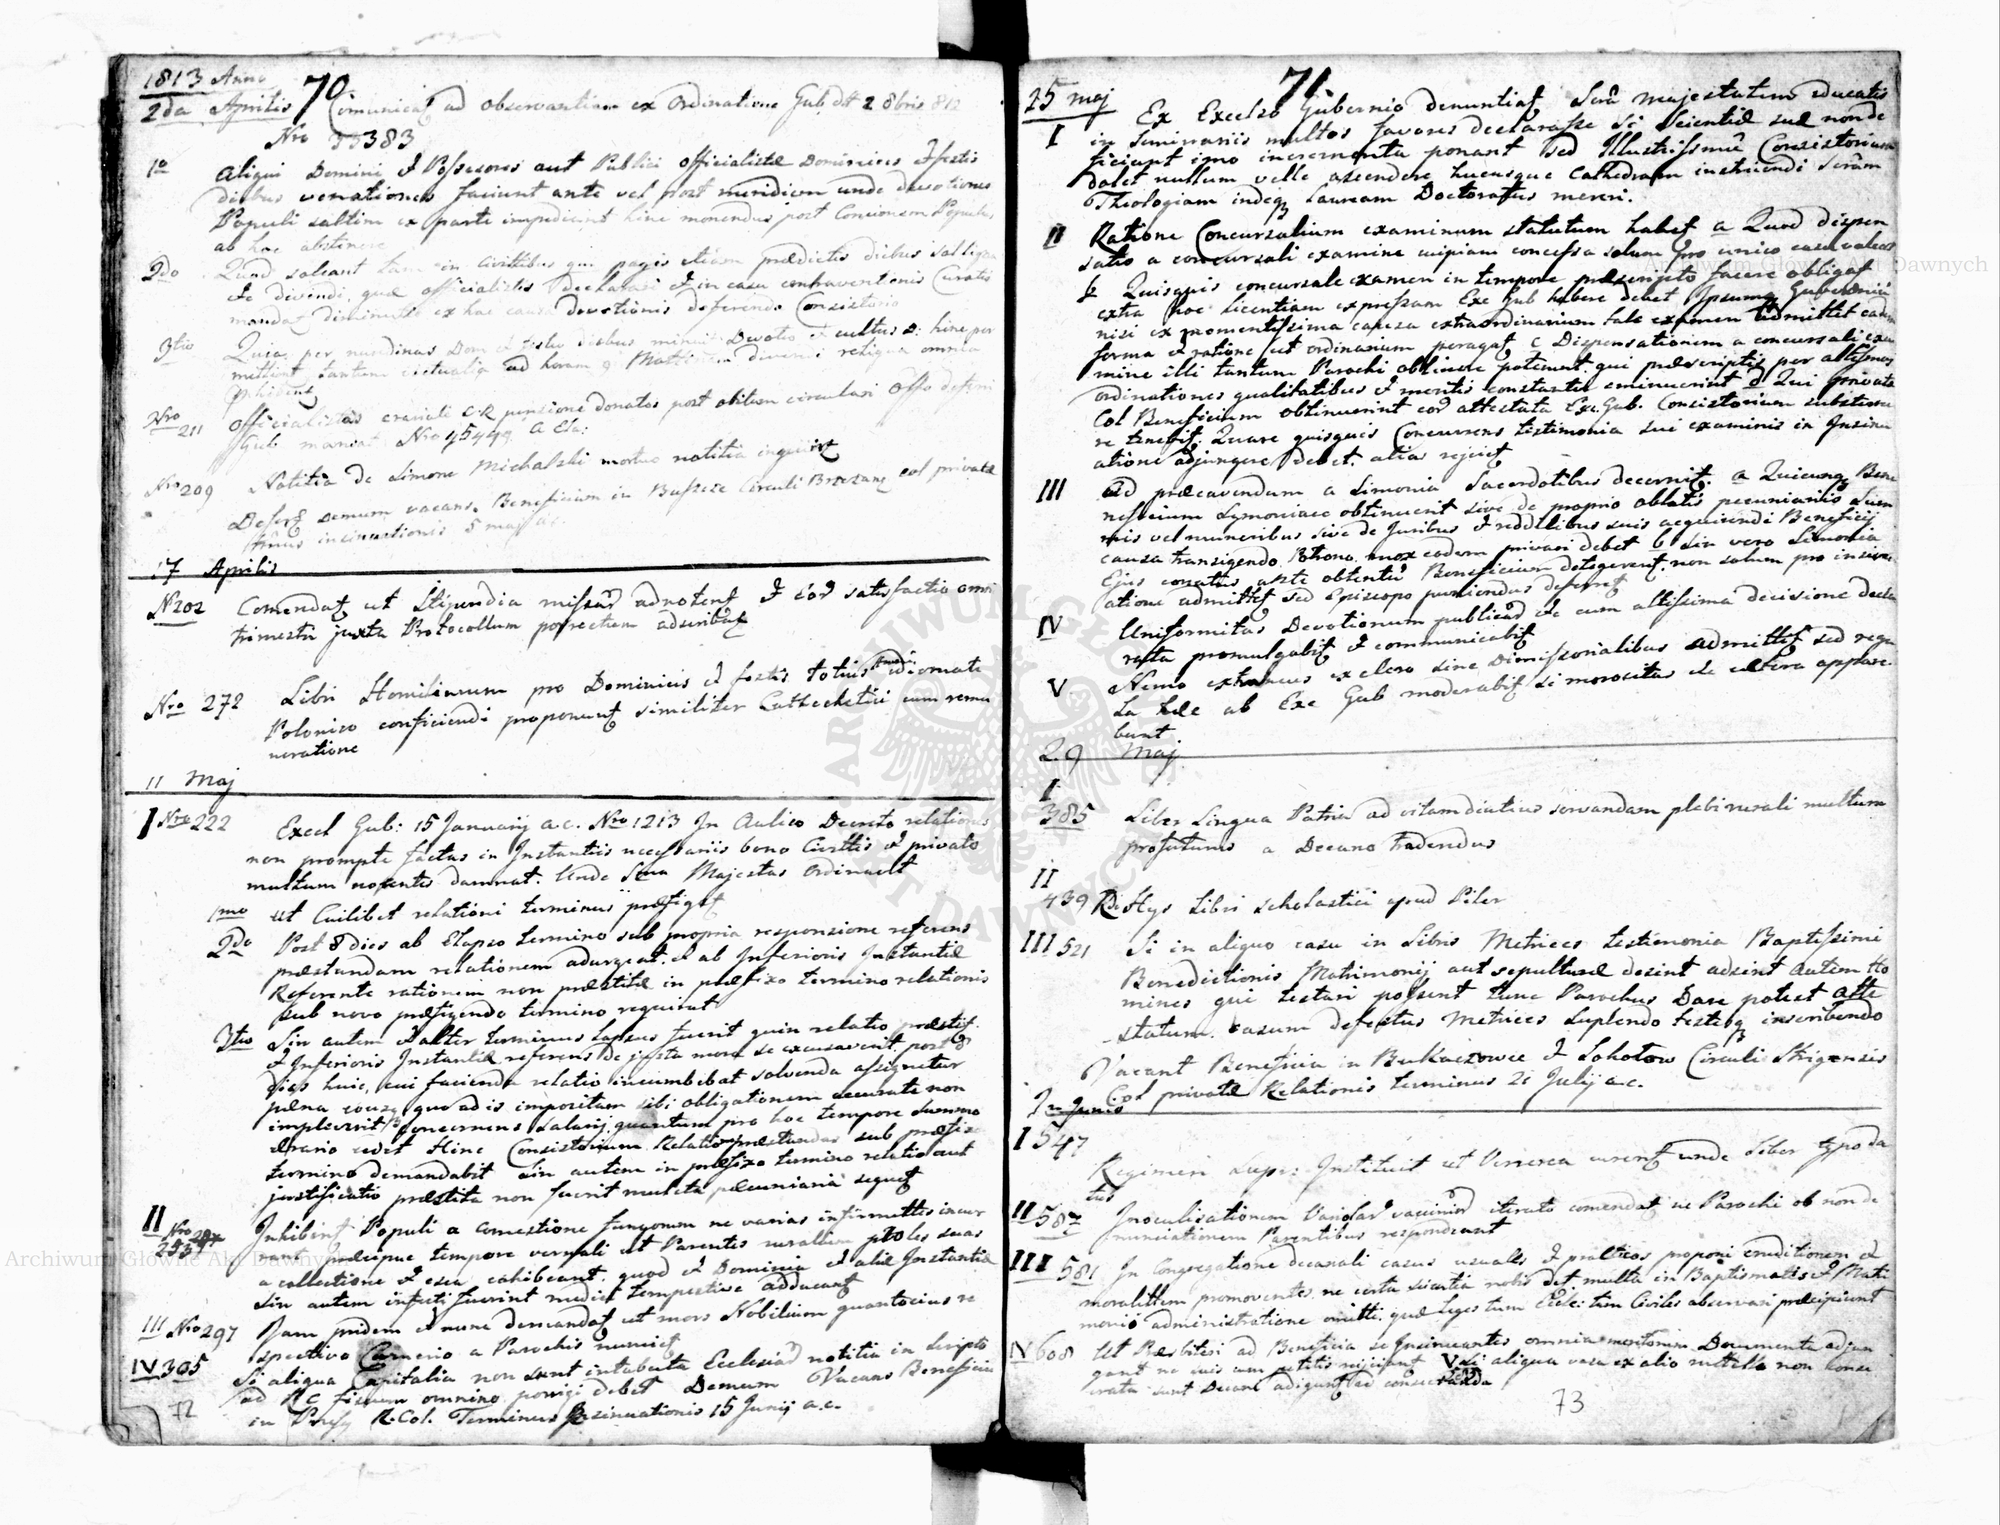 1813 Anno 70
2da Aprilis Comunicat ad observantiam ex Ordinatione Gub dtt 2 8bris 812
Nro 33383
1o Aliqui Domini & Possesores aut Publici officialistæ Dominicis & festis
diebus venationes faciunt ante vel post meridiem unde devotiones
Populi saltim ex parte impediunt hinc monendus post Concionem Populus
ab hoc abstinere
2do Quod soleant tam in Civittibus qu pagis etiam prædictis diebus sal ligna
& dividi, quæ officialistis declarasi & in casu contraventionis Curatis
mandat diminutis ex hac causa devotionis deferendo Consistorio
3tio Quia per nundinas Dom et festis diebus minuit Devotio et cultus D: hinc per
mittunt tantum victualia ad horam 9 Matt divendi reliqua omnia
prohibent
Nro 211 Officialistas craciati C:R pensione donatos post obitum circulari Offo deferri
Gub: mandat Nro 45449 a Cta:
Nro 209 Notitia de Simone Michalski mortuo notitia inquirit
Defert demum vacans Beneficium in Buszcze Circuli Brzezanz col privatæ
insinuationis 5 maji ac.
17 Aprilis
N202 Comendat ut Stipendia missar adnotent & eor satisfactio omni
trimestri juxta Protocollum porrectum adscribat
Nro 272 Libri Homiliarum pro Dominicis & festis totius anni idiomate
Polonico conficiendi proponunt similiter Cathechetici cum remu
neratione
11 Maj
I Nro 222 Excel Gub: 15 Januarij a.c. Nro 1213 In Aulico Decreto relationes
non prompte factas in Instantiis necessariis bono Civitti & privato
multum nocentes damnat. Unde Sua Majestas Ordinavit
1mo ut Cuilibet relationi terminus præfigat
2do Post 8 dies ab Elapso termino sub propria responsione referens
præstandam relationem adurgeat. & ab Inferioris Instantiæ
Referente rationem non præstitæ in præfixo termino relationis
sub novo præfigendo termino requirat
3tio Sin autem & alter terminus lapsus fuerit quin relatio præstit
& Inferioris Instantiæ referens de justa mora se excusaverit post 8
dies huic, cui facienda relatio incumbebat solvenda assignetur
pæna quoad is impositam sibi obligationem accurate non
impleverit concernens Salarij quantum pro hoc tempore summo
ærario cedet Hinc Consistorium Relationes præstandas sub præfixo
termino demandabit sin autem in præfixo termino relatio aut
justificatio præstita non fuerit mulcta pecuniaria sequet
II Nro 287 253 Inhibent Populi a comestione fungorum ne varias infirmittes incur
rant præcipue tempore vernali ut Parentes ruralium proles suas
a collectione & esca cohibeant quod & Dominia & aliæ Instantiæ
Sin autem infecti fuerint medici tempestive adducant
III Nro 297 Jam pridem & nunc demandat ut mors Nobilium quantocius re
spectivo Camerio a Parochis nunciet
IV 305 Si aliqua Capitalia non sunt intabulta Ecclesiar notitia in scripto
ad RC fiscum omnino porrigi debet Demum Vacans Beneficiu
in R. Col. Terminus Insinuationis 15 Junij a.c.
72
71.
25 maj Ex Excelso Gubernio denuntiat Scrâ majestatem educatis
I in Seminariis multos favores declarasse si Scientiæ suæ non de
ficiunt imo incrementa ponant sed Illustrissmũ Consistorium
dolet nullum velle ascendere hucusque Cathedram instruendi Scrâm
Theologiam indeq Lauream Doctoratus mereri.
II Ratione Concursalium examinum statutum habet a Quod dispen
satio a concursali examine cuipiam concessa solum pro unico casu valeat
b Quisquis concursale examen in tempore præscripto facere obligat
extra hoc licentiam expressam Exc Gub habere debet Ipsumq Gubernium
nisi ex momentissima causa extraordinarium tale examen admittet eadem
forma & ratione ut ordinarium peragat c Dispensationem a concursali exa
mine illi tantum Parochi obtinere poterunt qui præscriptis per altissmas
ordinationes qualitatibus & meritis constanter eminuerint d Qui privatæ
Col Beneficium obtinuerint eor attestata Exc. Gub. Consistorium substerne
re tenebit. Quare quisquis Concurrens testimonia sui examinis in Insinu
atione adjungere debet. alias rejiciet
III Ad præcavendum a Simonia Sacerdotibus decernit. a Quicunq Bene
neficium Symoniace obtinuerit sive de proprio oblatis pecuniariis sum
mis vel muneribus sive de Juribus & redditibus suis acquirendi Beneficij
causa transigendo Ptrono. mox eodem privari debet b Sin vero Simonia
Ejus conatus ante obtentũ Beneficium detegerent. non solum pro insinu
atione admittet sed Episcopo puniendus deferret
IV Uniformitas Devotionum publicar & cum altissima decisione decla
rata promulgabit & communicabit
V Nemo extraneus ex clero sine Dimissorialibus admittet sed regu
la hæc ab Exc Gub moderabit si morositas & cætera appare
bunt
29 Maj
I 385 Liber Lingua Patria ad vitam diutius servandam plebi rurali multum
profuturus a Decano tradendus
II 439 Rdi Hys Libri scholastici apud Piler
III 521 Si in aliquo casu in Libris Metrices testimonia Baptissimi
Benedictionis Matrimonij aut sepulturæ desint adsint autem Ho
mines qui testari possent tunc Parochus Dare potest atte
statum. casum defectus Metrices suplendo testesq inscribendo
Vacant Beneficia in Bukaczowce & Sokołow Circuli Strigensis
Col privatæ Relationis terminus 21 Julij a.c.
Junio
I 547 Regimen Supr: Instituit ut Venerea curent unde Liber typo da
tus
II 587 Inoculisationem Variolar vaccinar iterato comendat ne Parochi ob non de
nunciationem Parentibus respondeant
III 581 In Congregatione decanali casus usuales & practicos proponi eruditionem &
moralittem promoventes. ne certa scientia nobis det multa in Baptismatis & Mati
monii administratione omitti. quæ leges tum Eccles: tum Civiles observari præcipiunt
IV 608 Ut Presbiteri ad Beneficia se Insinuantes omnia meritorum Documenta adjun
gant ne suis cum petitis rejiciant V Si aliqua vasa ex alio mettallo non conse
crata sunt Decani adigunt ad consecranda
73
Archiwum Główne Akt Dawnych
Archiwum Główne Akt Dawnych
ARCHIWUM GŁÓWNE AKT DAWNYCH